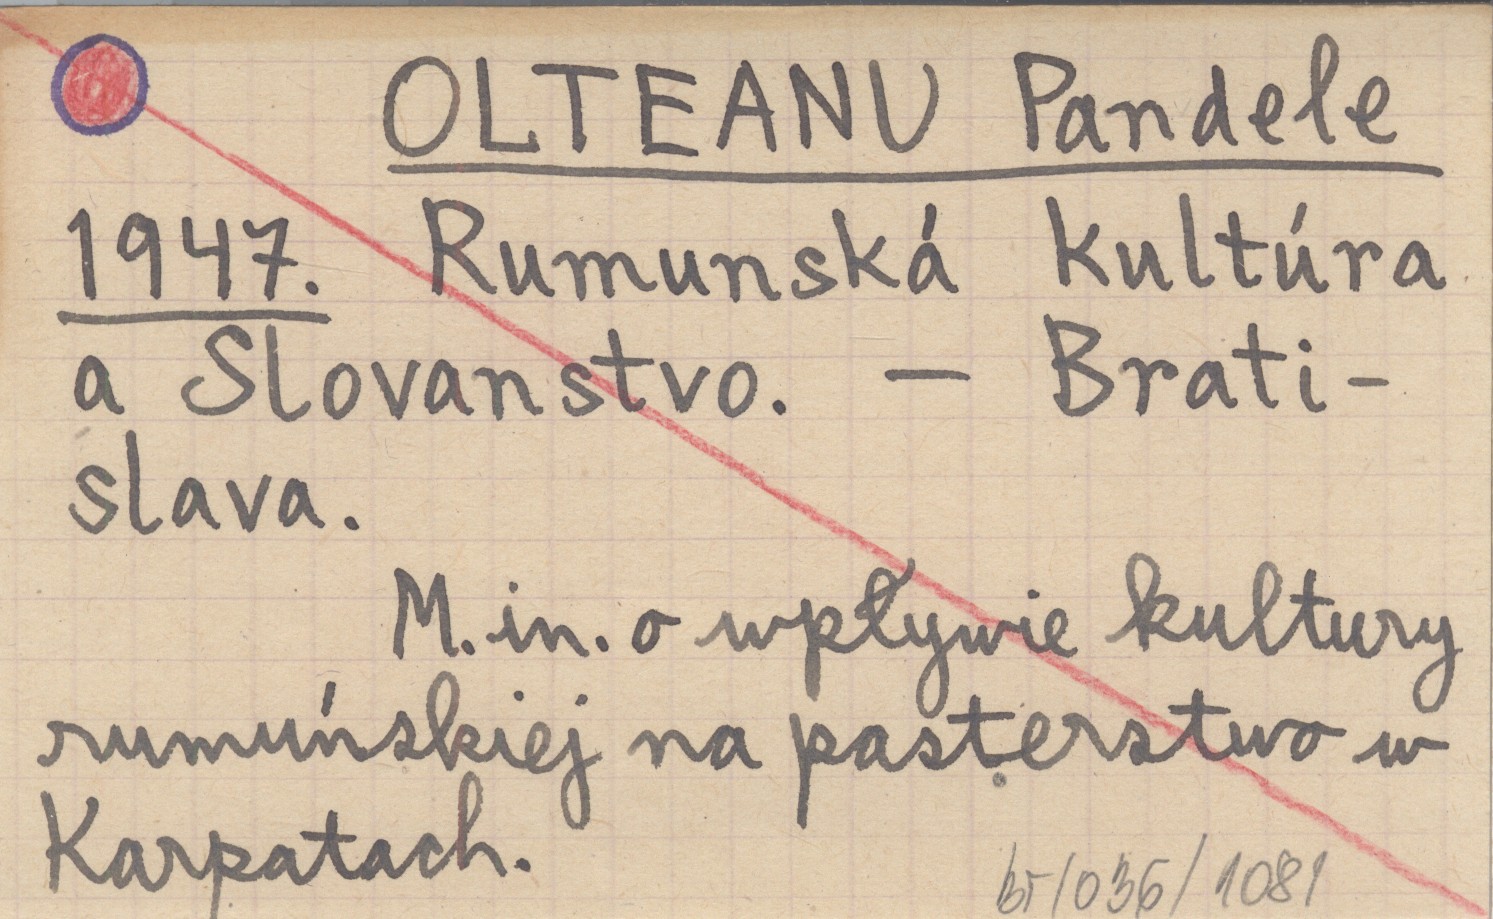 OLTEANU Pandele
1947. Rumunská kultúra
a Slovanstvo. — Brati-
slava.
M. in. o wpływie kultury
rumuńskiej na pasterstwo w
Karpatach.
br/036/1081